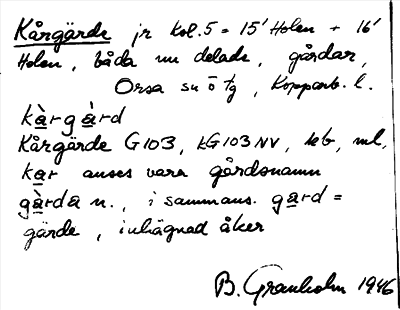 Kårgärde jr kol. 5 = 15' Holen + 16'
Holen, båda nu delade, gårdar,
Orsa sn ö tg, Kopparb. l.
kàrgàrd
Kårgärde G103, kG103NV, keb, ml,
kar anses vara gårdsnamn
gàrda n., i sammans. gard =
gärde, inhägnad åker
B. Granholm 1946